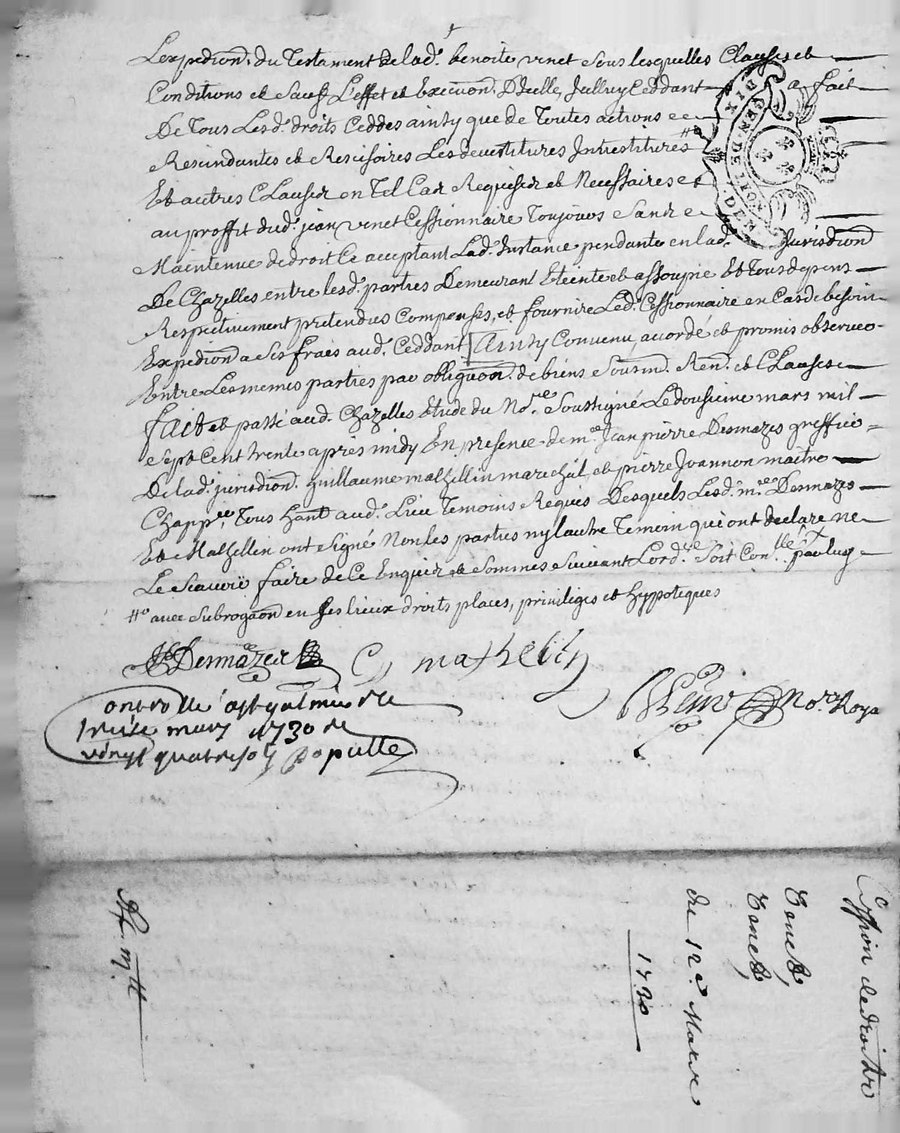 L'expedion. du Testament de lad. benoite vinet sous lesquelles Clauses et
Conditions et sauf L'effet et Execuon. D'Icelle, Icelluy Ceddant a fait
De Tous Lesd. droits Ceddes ainsy que de Toutes actions
Rescindantes et Rescisoires Les devestitures Investitures #
Et autres Clauses en Tel Cas Requises et Necessaires
au proffit dud. jean vinet Cessionnaire Toujours sans
Maintenue de droit Ce acceptant Lad. Instance pendante en lad. Jurisdion
De Chazelles entre lesd. parties Demeurant Eteinte et assoupie Et Tous depens
Respectivement pretendus Compensés, et fournira Led. Cessionnaire en Cas de besoin
Expedion a ses frais aud. Ceddant Ainsy Convenu acordé et promis observer
Entre Les memes parties par obligaon. de biens soumn. Ren. et Clauses
fait et passé aud. Chazelles Etude du No.re Soussigné Le dousieme mars mil
sept Cent trente apres midy En presence de m.e Jean pierre Desmazes greffier
De lad. jurisdion. guillaume mathellin marechal, et pierre Joannon maitre
Chapp.er, Tous habt. aud. Lieu Temoins Requis Desquels Lesd. m.e Desmazes
Et Mathellin ont signé Non les parties ny l'autre Temoin qui ont declaré ne
Le scavoir faire de Ce Enquis et sommés suivant Lord.re Soit Con.llé
# avec Subrogaon en ses lieux droits places, privileges et hypoteques
Desmazes
mathelin
No.re Roya
Controllé a st galmier le
treize mars 1730
vingt quatre sols Populle
DIX DEN. GEN. DE LION
Cession de droits
Venet,
Venet,
du 12e. Mars
1730